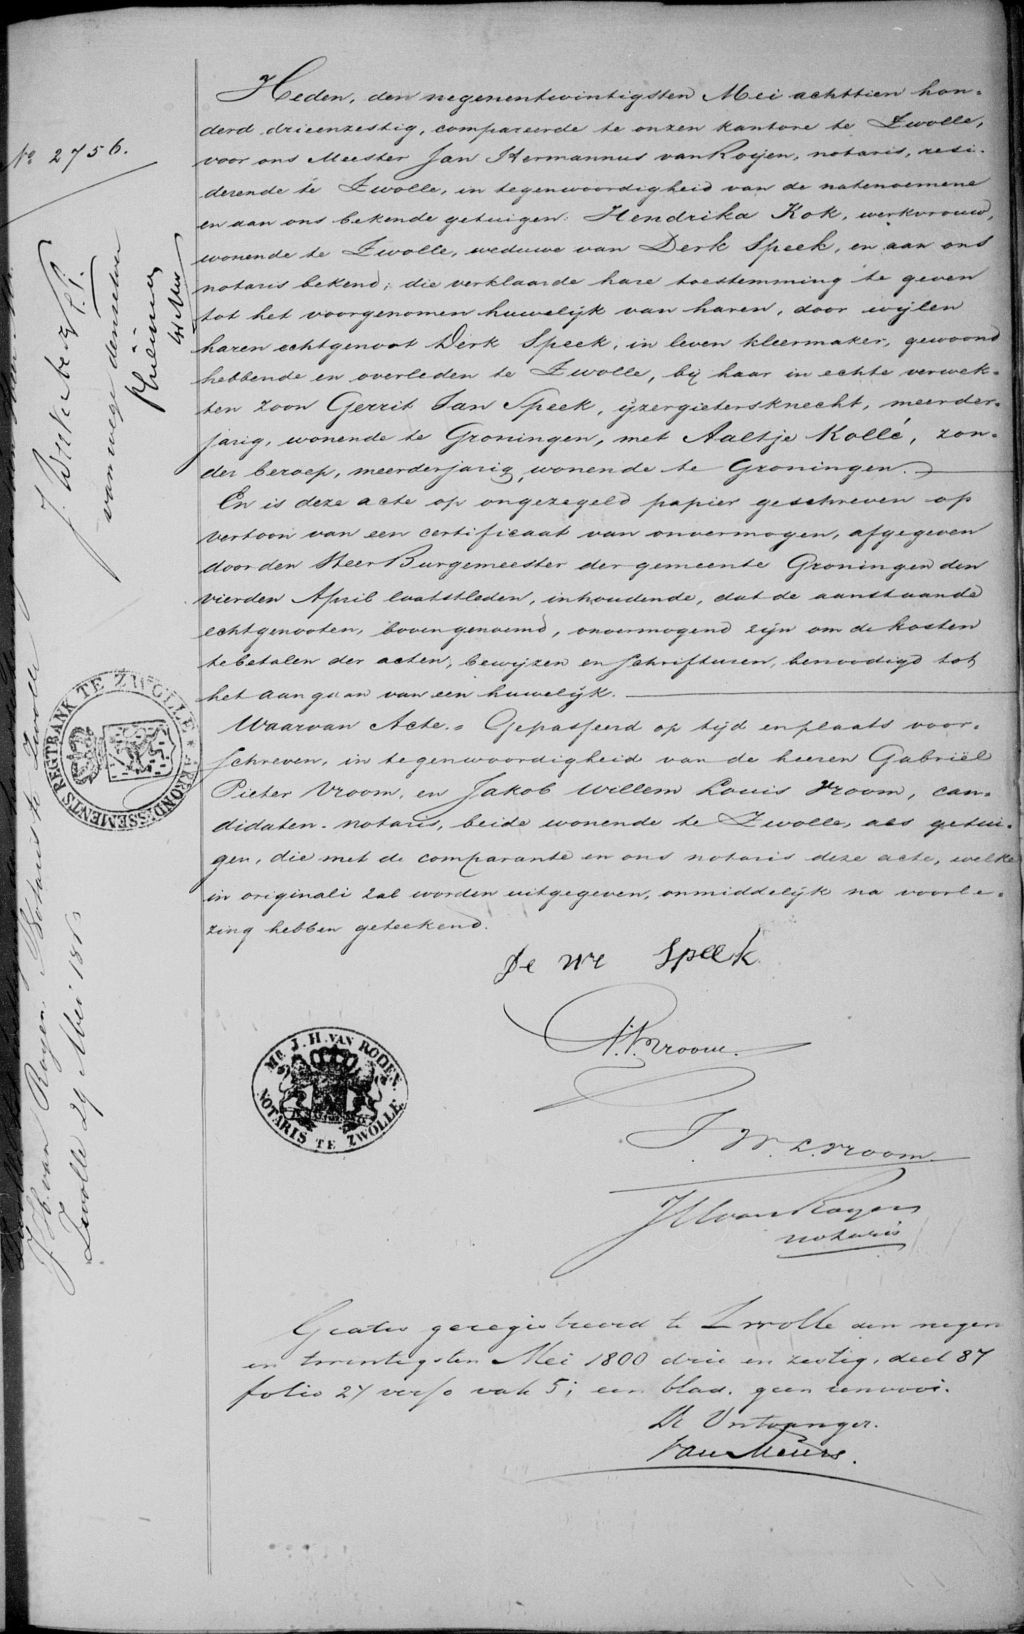 Nº 2756.
Heden, den negenentwintigsten Mei achttien hon-
derd drieenzestig, compareerde te onzen kantore te Zwolle,
voor ons Meester Jan Hermannus van Roijen, notaris, resi-
derende te Zwolle, in tegenwoordigheid van de natenoemene
en aan ons bekende getuigen: Hendrika Kok, werkvrouw,
wonende te Zwolle, weduwe van Derk Speek, en aan ons
notaris bekend; die verklaarde hare toestemming te geven
tot het voorgenomen huwelijk van haren, door wijlen
haren echtgenoot Derk Speek, in leven kleermaker, gewoond
hebbende en overleden te Zwolle, bij haar in echte verwek-
ten zoon Gerrit Jan Speek, ijzergietersknecht, meerder-
jarig, wonende te Groningen, met Aaltje Kollé, zon-
der beroep, meerderjarig, wonende te Groningen.
En is deze acte op ongezegeld papier geschreven op
vertoon van een certificaat van onvermogen, afgegeven
door den Heer Burgemeester der gemeente Groningen den
vierden April laatstleden, inhoudende, dat de aanstaande
echtgenooten, bovengenoemd, onvermogend zijn om de kosten
te betalen der acten, bewijzen en schrifturen, benoodigd tot
het aangaan van een huwelijk.
Waarvan Acte. Gepasseerd op tijd en plaats voor-
schreven, in tegenwoordigheid van de heeren Gabriël
Pieter Vroom, en Jakob Willem Louis Vroom, can-
didaten-notaris, beide wonende te Zwolle, als getui-
gen, die met de comparante en ons notaris deze acte, welke
in originali zal worden uitgegeven, onmiddelijk na voorle-
zing hebben geteekend.
De We Speek
G.P. Vroom.
J. W. L. Vroom.
JHvan Roijen
notaris
MR. J. H. VAN ROIJEN.
NOTARIS TE ZWOLLE.
Gratis geregistreerd te Zwolle den negen
en twintigsten Mei 1800 drie en zestig, deel 87
folio 27 verso vak 5; een blad, geen renvooi.
De Ontvanger.
van Meurs.
ARRONDISSEMENTS REGTBANK TE ZWOLLE
van wege denzelven
J. H. van Roijen Notaris te Zwolle
Zwolle 29 Mei 1863